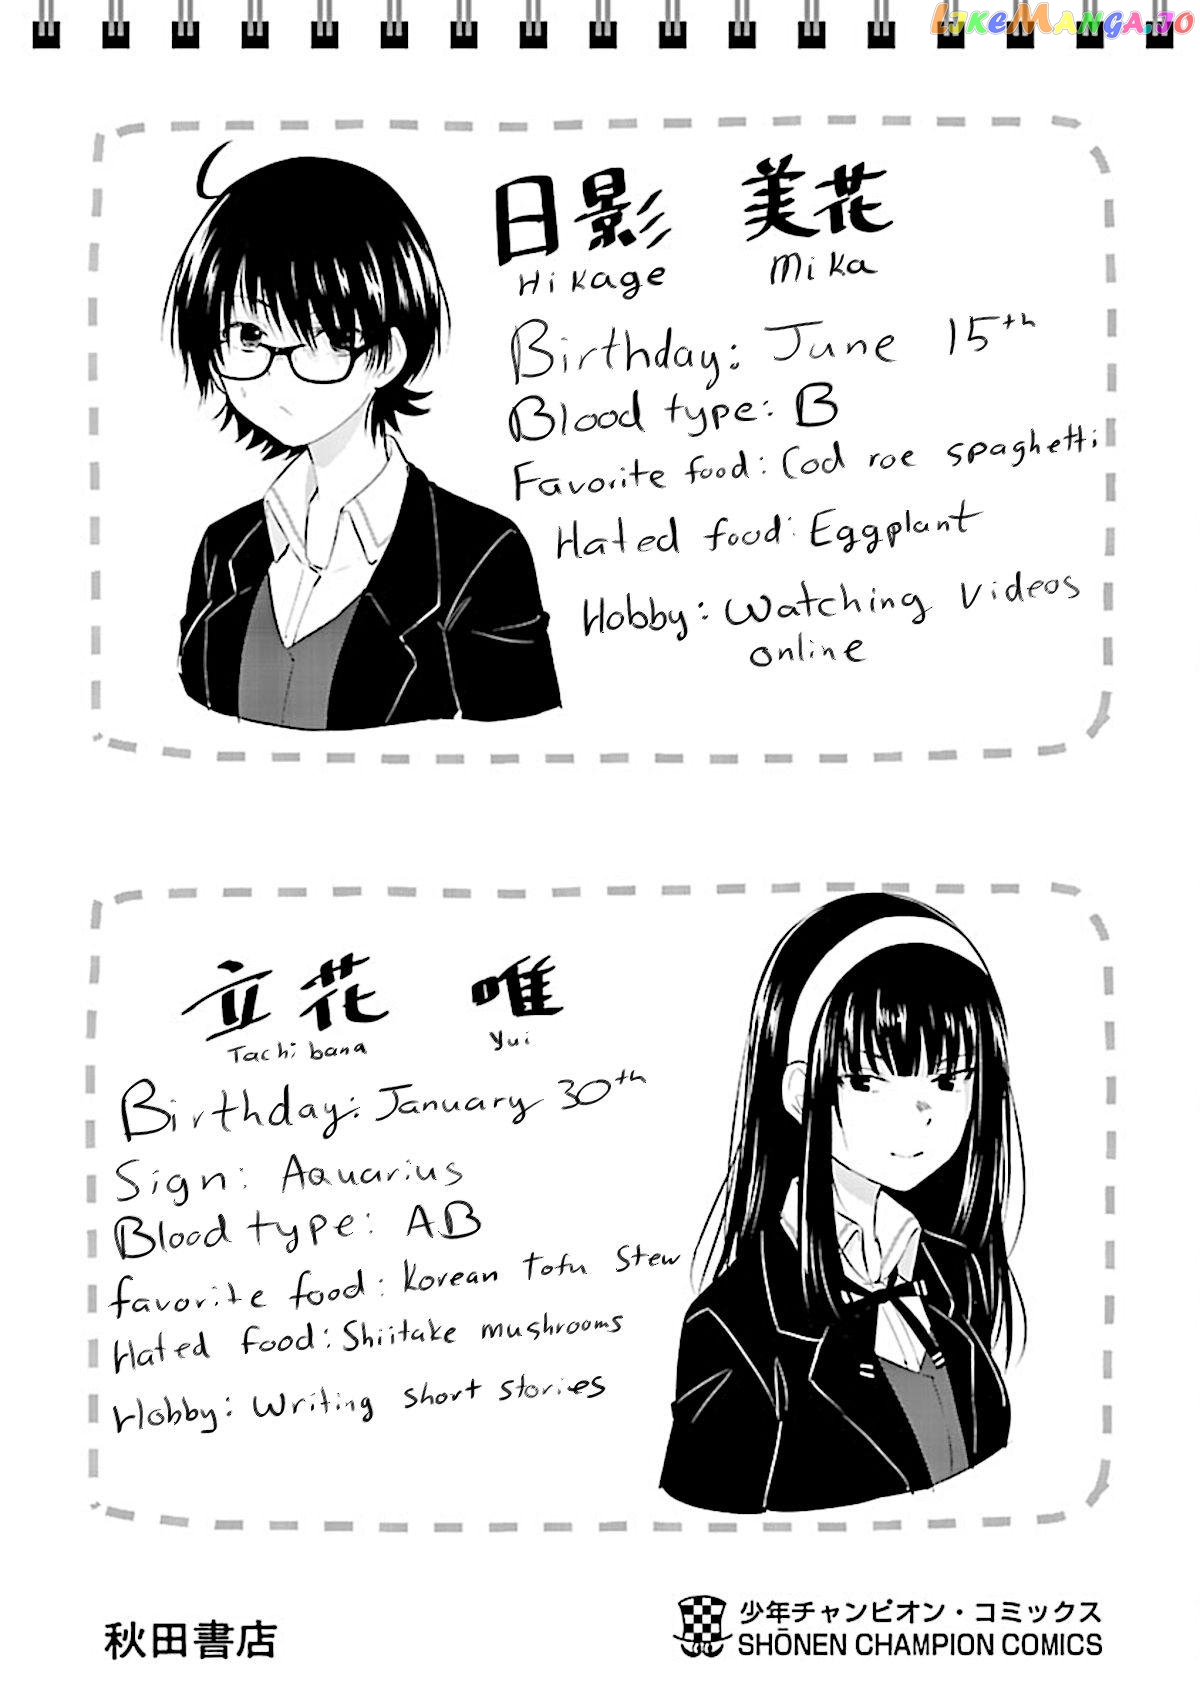 LIKEMANGA.IO
日影 美花
Hikage Mika
Birthday: June 15th
Blood type: B
Favorite food: Cod roe spaghetti
Hated food: Eggplant
Hobby: Watching videos
online
立花 唯
Tachibana Yui
Birthday: January 30th
Sign: Aquarius
Blood type: AB
favorite food: Korean Tofu Stew
Hated food: Shiitake mushrooms
Hobby: Writing short stories
秋田書店
少年チャンピオン・コミックス
SHŌNEN CHAMPION COMICS